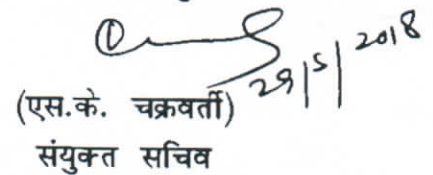 29/5/2018
(एस.के. चक्रवर्ती)
संयुक्त सचिव